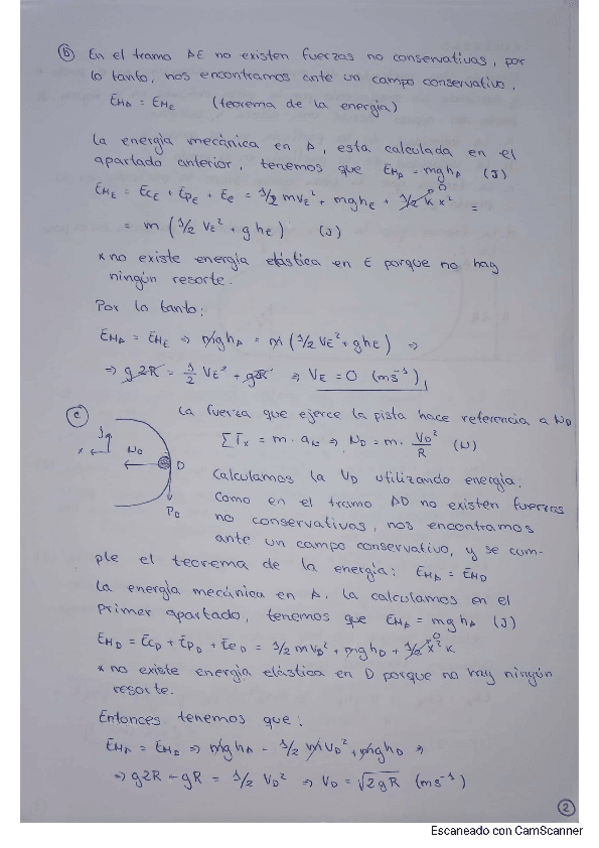 b) En el tramo AE no existen fuerzas no conservativas, por
lo tanto, nos encontramos ante un campo conservativo.
EMA = EME (teorema de la energía)
La energía mecánica en A, esta calculada en el
apartado anterior, tenemos que EMA = mghA (J)
EME = ECE + EPE + Ee = 1/2 mVE² + mghE + 1/2 k x² =
0
= m (1/2 VE² + ghE) (J)
* no existe energía elástica en E porque no hay
ningún resorte.
Por lo tanto:
EMA = EME => mghA = m (1/2 VE² + ghE) =>
=> g2R = 1/2 VE² + g2R => VE = 0 (ms⁻¹)
c) La fuerza que ejerce la pista hace referencia a ND
ΣFx = m · aN => ND = m · VD²/R (N)
j
x
ND
D
PD
Calculamos la VD utilizando energía:
Como en el tramo AD no existen fuerzas
no conservativas, nos encontramos
ante un campo conservativo, y se cum-
ple el teorema de la energía: EMA = EMD
La energía mecánica en A, la calculamos en el
primer apartado, tenemos que EMA = mghA (J)
EMD = ECD + EPD + EeD = 1/2 mVD² + mghD + 1/2 x² k
0
* no existe energía elástica en D porque no hay ningún
resorte.
Entonces tenemos que:
EMA = EMD => mghA = 1/2 mVD² + mghD =>
=> g2R - gR = 1/2 VD² => VD = √2gR (ms⁻¹)
2
Escaneado con CamScanner